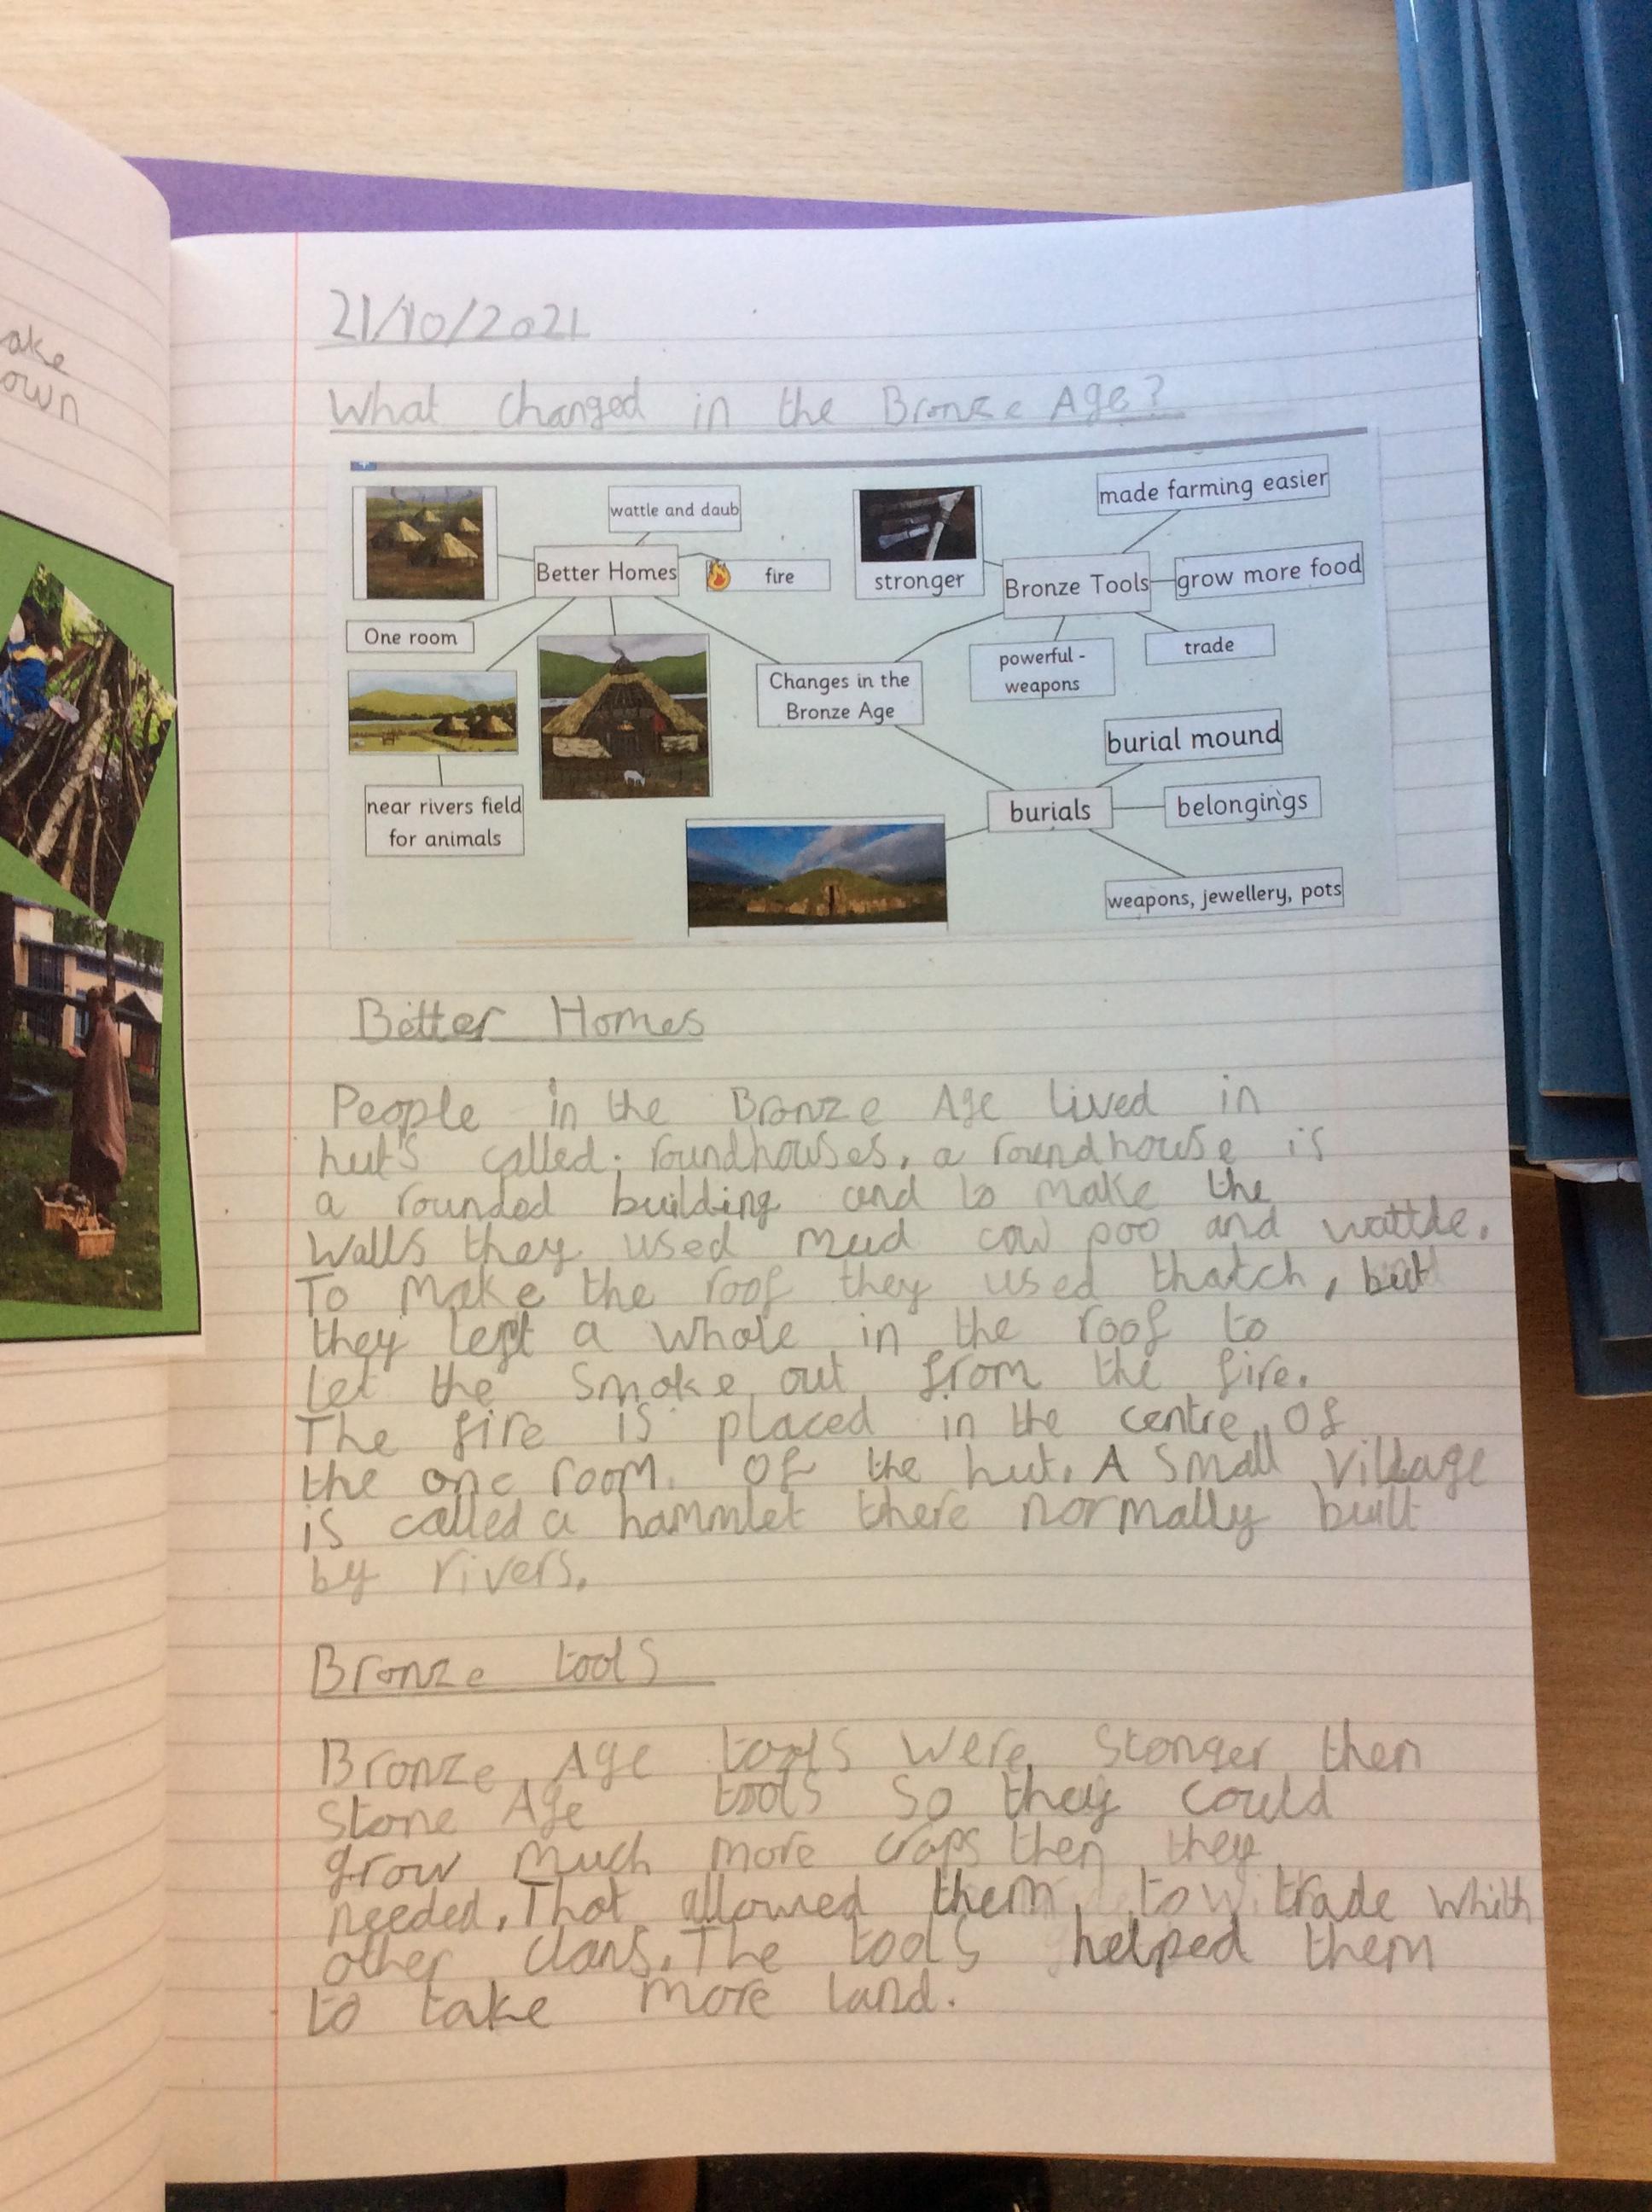 ake
own
21/10/2021
What changed in the Bronze Age?
wattle and daub
Better Homes
fire
One room
near rivers field
for animals
stronger
made farming easier
Bronze Tools
grow more food
trade
powerful -
weapons
Changes in the
Bronze Age
burial mound
burials
belongings
weapons, jewellery, pots
Better Homes
People in the Bronze Age lived in
hut's called: roundhouses, a roundhouse is
a rounded building and to make the
walls they used mud cow poo and wattde.
To make the roof they used thatch, but
they left a whole in the roof to
let the smoke out from the fire.
The fire is placed in the centre of
the one room. Of the hut. A small village
is called a hammlet there normally built
by rivers.
Bronze tools
Bronze Age tools were stonger then
Stone Age tools so they could
grow much more crops then they
needed. That allowed them to trade whith
other clans. The tools helped them
to take more land.